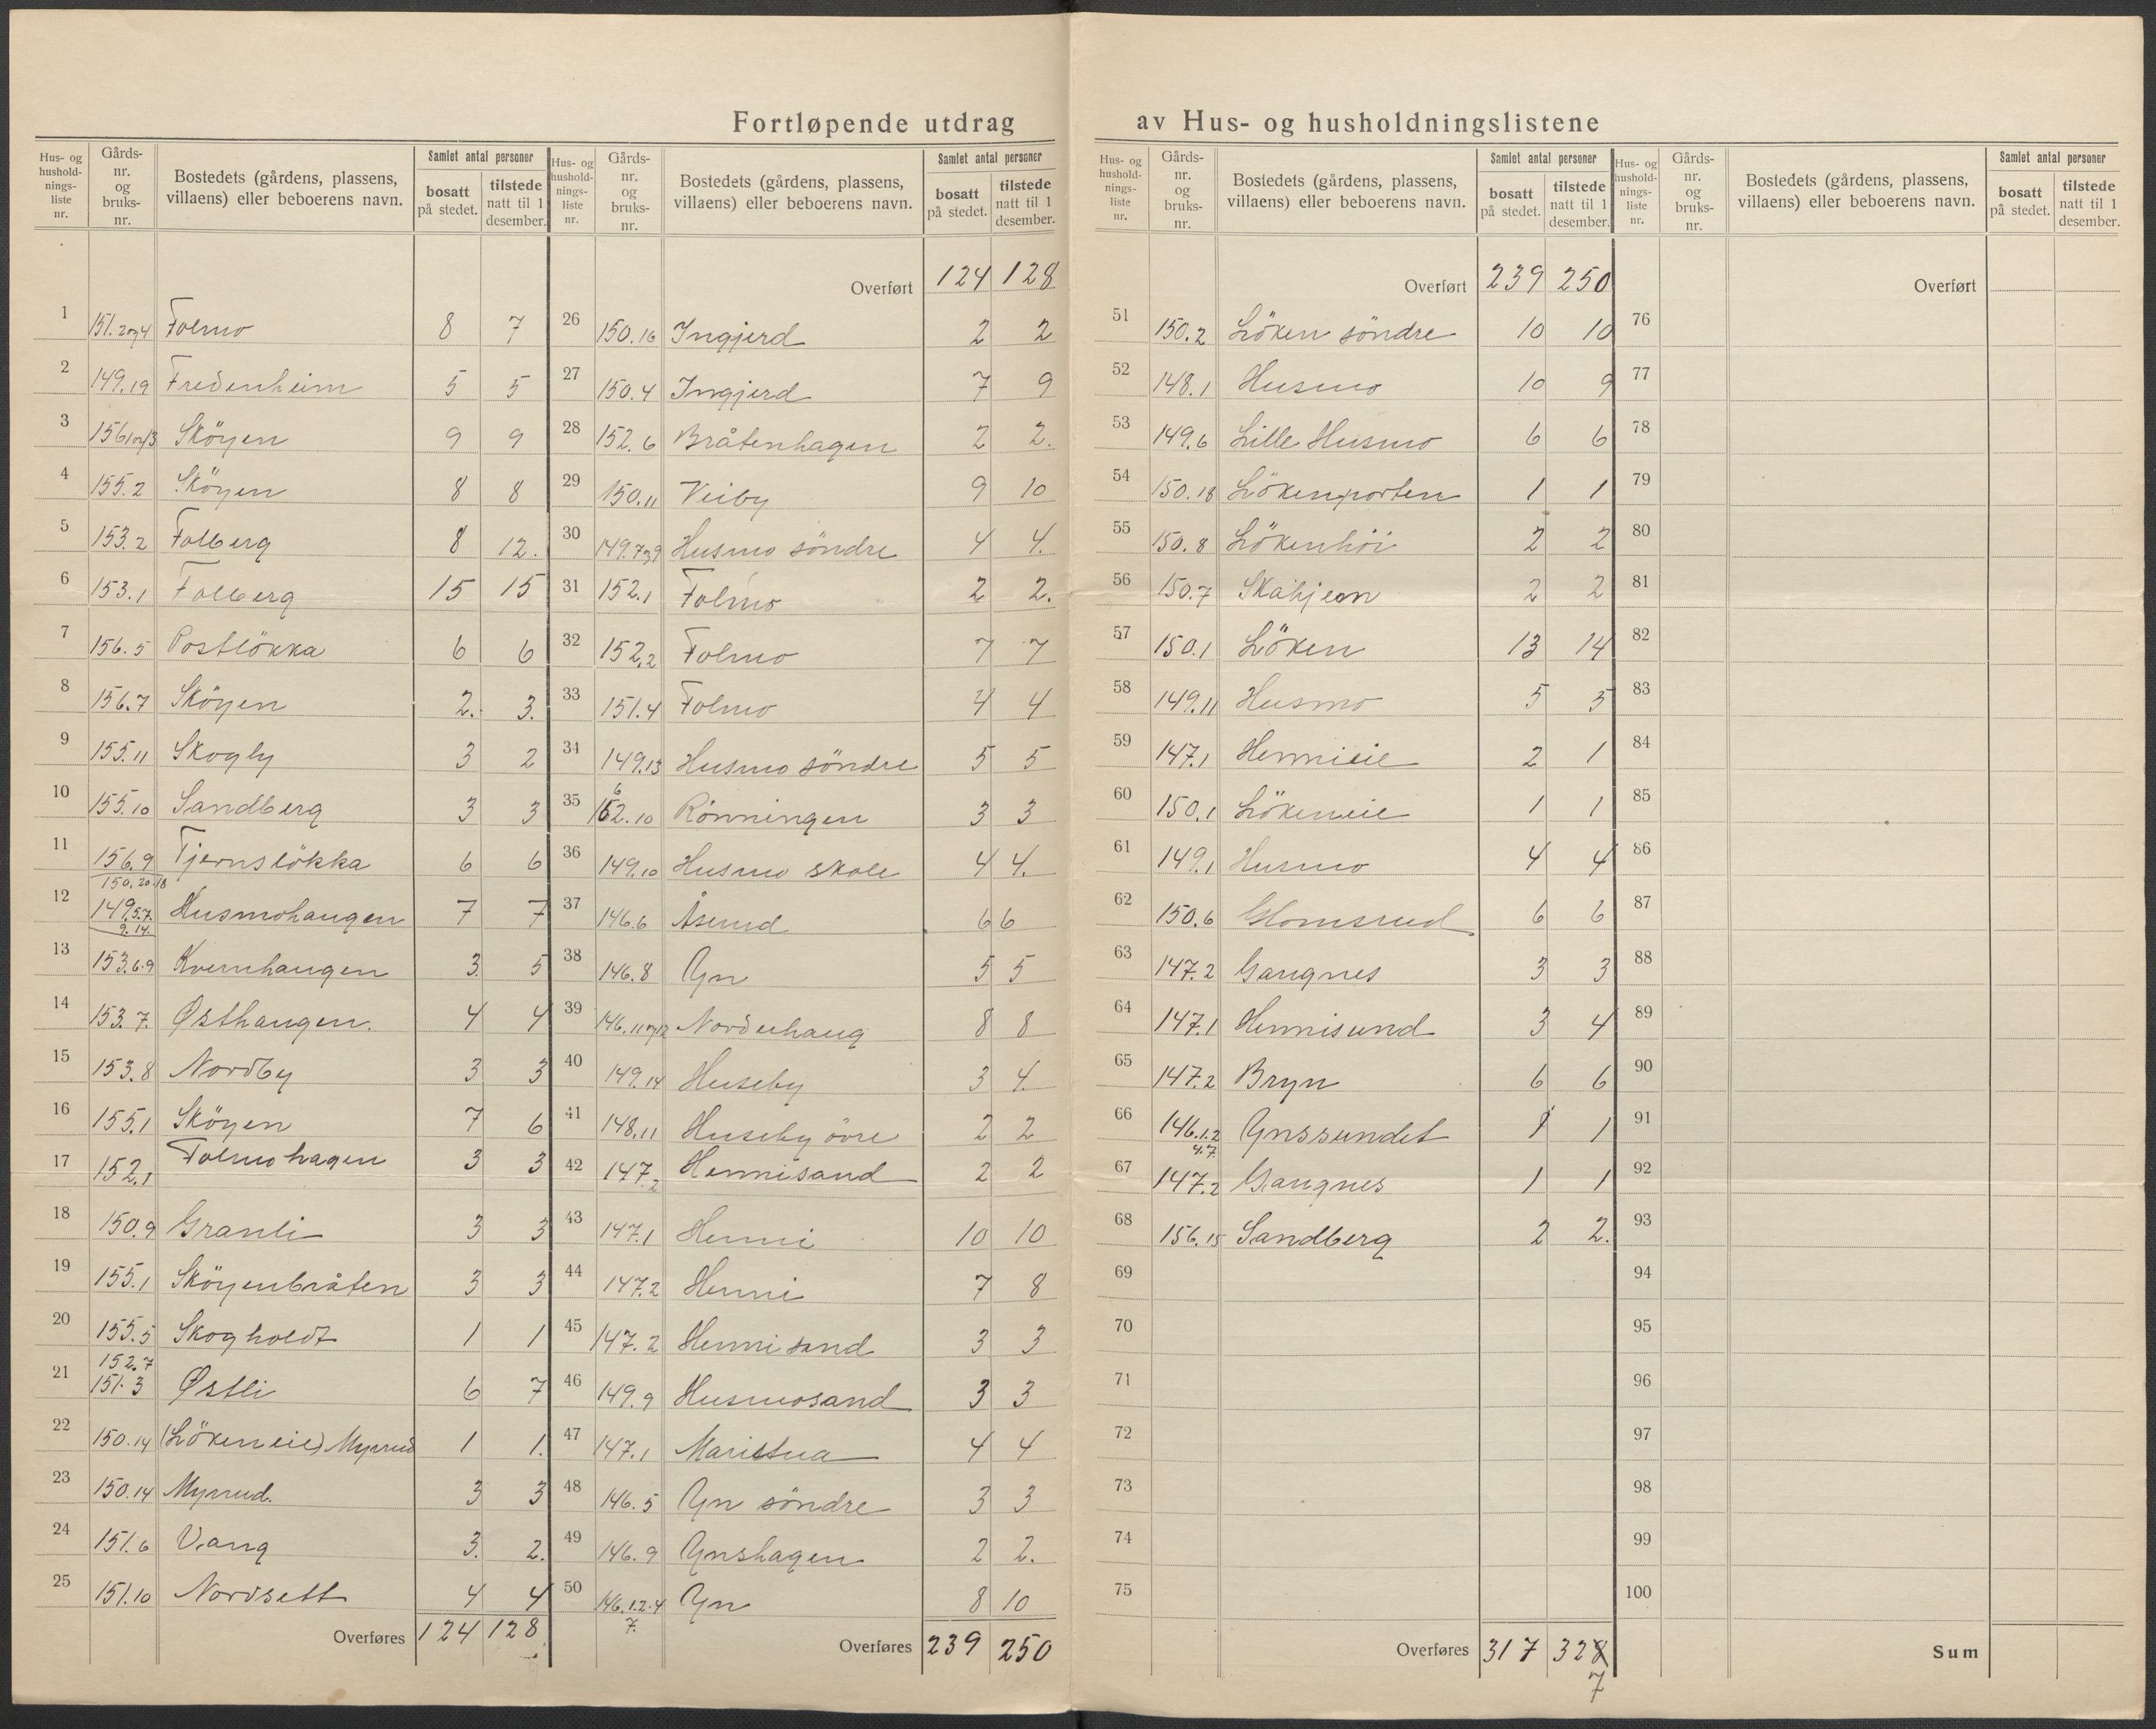 Fortløpende utdrag av Hus- og husholdningslistene
Hus- og hushold- nings- liste nr. | Gårds- nr. og bruks- nr. | Bostedets (gårdens, plassens, villaens) eller beboerens navn. | Samlet antal personer | bosatt på stedet. | tilstede natt til 1 desember.
1 151.2og4 Folmo 8 7
2 149.19 Fredenheim 5 5
3 156.1og13 Sköyen 9 9
4 155.2 Sköyen 8 8
5 153.2 Folberg 8 12.
6 153.1 Folberg 15 15
7 156.5 Postlökka 6 6
8 156.7 Sköyen 2. 3.
9 155.11 Skogly 3 2
10 155.10 Sandberg 3 3
11 156.9 Tjernslökka 6 6
12 150.20.18 149.5.7. 9.14. Husmohaugen 7 7
13 153.6.9 Kvernhaugen 3 5
14 153.7. Østhaugen. 4 4
15 153.8 Nordby 3 3
16 155.1 Sköyen 7 6
17 152.1 Folmohagen 3 3
18 150.9 Granli 3 3
19 155.1 Sköyenbråten 3 3
20 155.5 Skogholdt 1 1
21 152.7 151.3 Østli 6 7
22 150.14 (Lökeneie) Myrrud 1 1.
23 150.14 Myrrud. 3 3
24 151.6 Vang 3. 2.
25 151.10 Nordsett 4 4
Overføres 124 128
Hus- og hushold- nings- liste nr. | Gårds- nr. og bruks- nr. | Bostedets (gårdens, plassens, villaens) eller beboerens navn. | Samlet antal personer | bosatt på stedet. | tilstede natt til 1 desember.
Overført 124 128
26 150.16 Ingjerd 2 2
27 150.4 Ingjerd 7 9
28 152.6 Bråtenhagen 2 2.
29 150.11 Veiby 9 10
30 149.7og9 Husmo söndre 4 4.
31 152.1 Folmo 2 2.
32 152.2 Folmo 7 7
33 151.4 Folmo 4 4
34 149.13 Husmo söndre 5 5
35 152.10 Rönningen 3 3
36 149.10 Husmo skole 4 4.
37 146.6 Åserud 6 6
38 146.8 Gn 5 5
39 146.11og12 Nordenhaug 8 8
40 149.14 Huseby 3 4.
41 148.11 Huseby övre 2 2
42 147.2 Hennisand 2 2
43 147.1 Henni 10 10
44 147.2 Henni 7 8
45 147.2 Hennisand 3 3
46 149.9 Husmosand 3 3
47 147.1 Maristua 4 4
48 146.5 Gn söndre 3 3
49 146.9 Gnshagen 2 2.
50 146.1.2.4 7. Gn 8 10
Overføres 239 250
Hus- og hushold- nings- liste nr. | Gårds- nr. og bruks- nr. | Bostedets (gårdens, plassens, villaens) eller beboerens navn. | Samlet antal personer | bosatt på stedet. | tilstede natt til 1 desember.
Overført 239 250
51 150.2 Löken söndre 10 10
52 148.1 Husmo 10 9
53 149.6 Lille Husmo 6 6
54 150.18 Lökenporten 1 1
55 150.8 Lökenhöi 2 2
56 150.7 2 2
57 150.1 Löken 13 14
58 149.11 Husmo 5 5
59 147.1 Hennieie 2 1
60 150.1 Lökeneie 1 1
61 149.1 Husmo 4 4
62 150.6 Glomsrud 6 6
63 147.2 Gangnes 3 3
64 147.1 Hennisund 3 4
65 147.2 Bryn 6 6
66 146.1.2 4.7. Gnssundet 1 1
67 147.2 Gangnes 1 1
68 156.15 Sandberg 2 2.
69
70
71
72
73
74
75
Overføres 317 328
7
Hus- og hushold- nings- liste nr. | Gårds- nr. og bruks- nr. | Bostedets (gårdens, plassens, villaens) eller beboerens navn. | Samlet antal personer | bosatt på stedet. | tilstede natt til 1 desember.
Overført
76
77
78
79
80
81
82
83
84
85
86
87
88
89
90
91
92
93
94
95
96
97
98
99
100
Sum